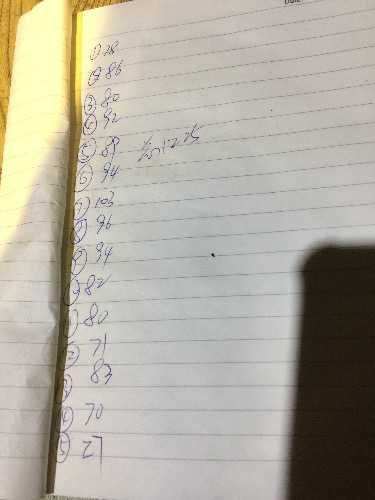 ① 28
② 86
③ 80
④ 92
⑤ 89
1225
⑥ 94
⑦ 103
⑧ 96
⑨ 94
⑩ 82
⑪ 80
⑫ 71
⑬ 83
⑭ 70
⑮ 27